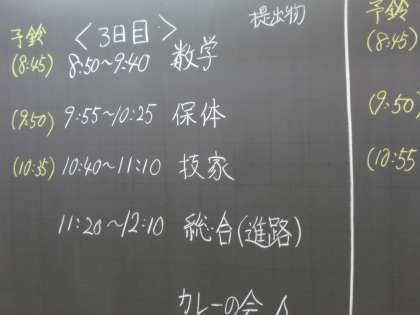 予鈴 <3日目> 提出物
(8:45) 8:50~9:40 数学
(9:50) 9:55~10:25 保体
(10:35) 10:40~11:10 技家
11:20~12:10 総合(進路)
カレーの会
予鈴
(8:45)
(9:50)
(10:55